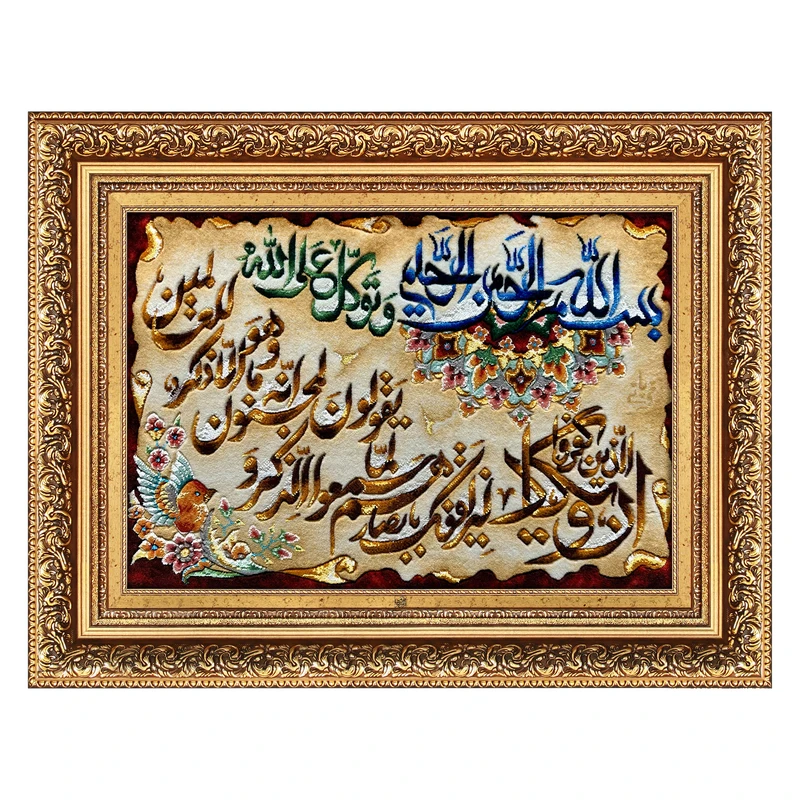 بسم الله الرحمن الرحيم
وتوكل على الله
وإن يكاد الذين كفروا
ليزلقونك بأبصارهم
لما سمعوا الذكر و
يقولون إنه لمجنون
وما هو إلا ذكر
للعالمين